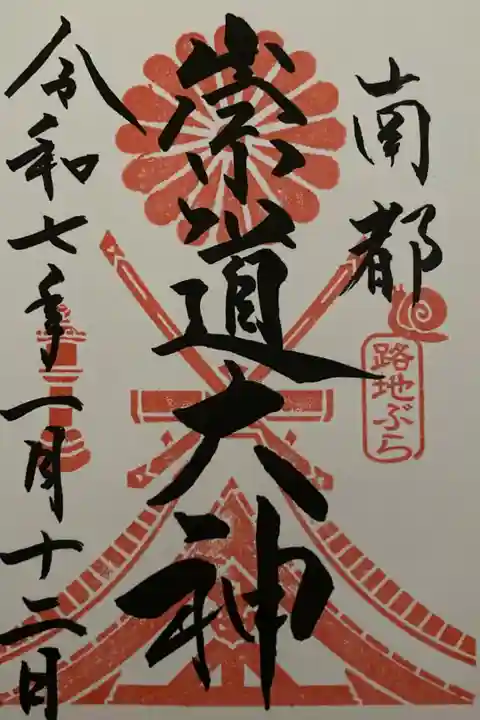 南都
路地ぶら
崇道大神
令和七年一月十二日